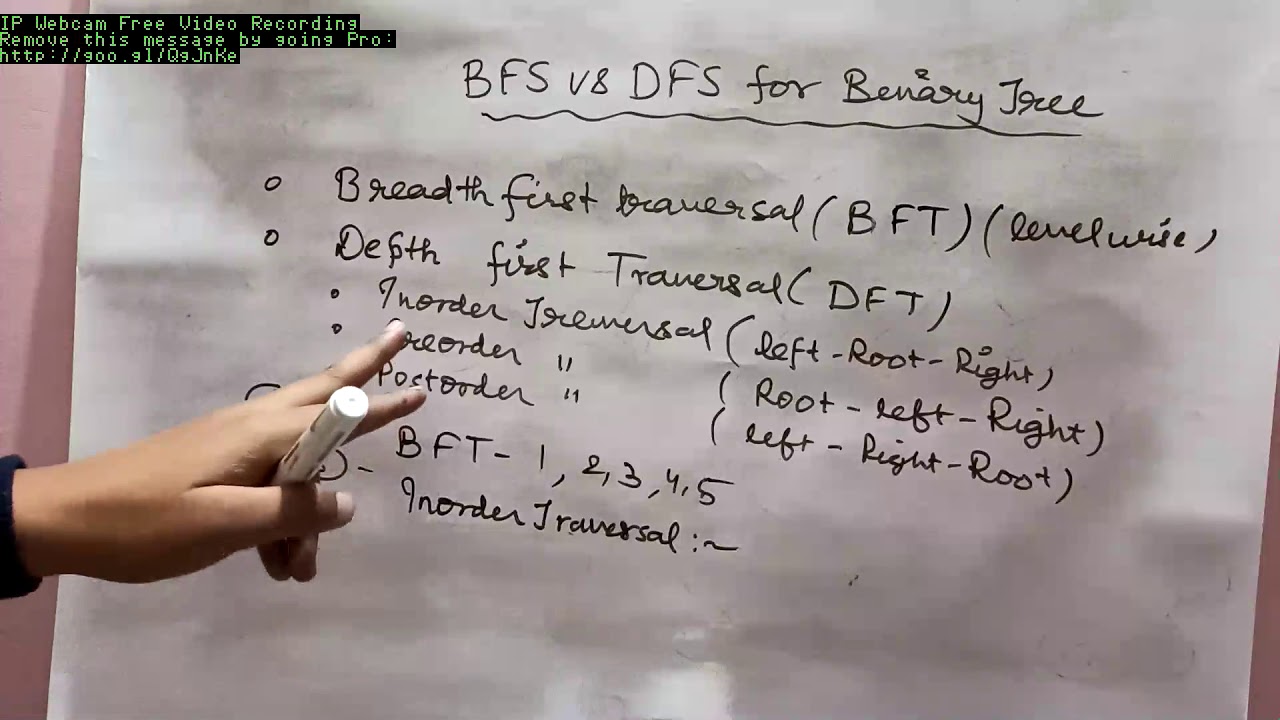 IP Webcam Free Video Recording
Remove this message by going Pro:
http://goo.gl/QgJnKe
BFS vs DFS for Benary Tree
Breadth first traversal (BFT) (levelwise)
Depth first Traversal (DFT)
Inorder Traversal (left-Root-Right)
Preorder " (Root-left-Right)
Postorder " (left-Right-Root)
BFT- 1, 2, 3, 4, 5
Inorder Traversal :~